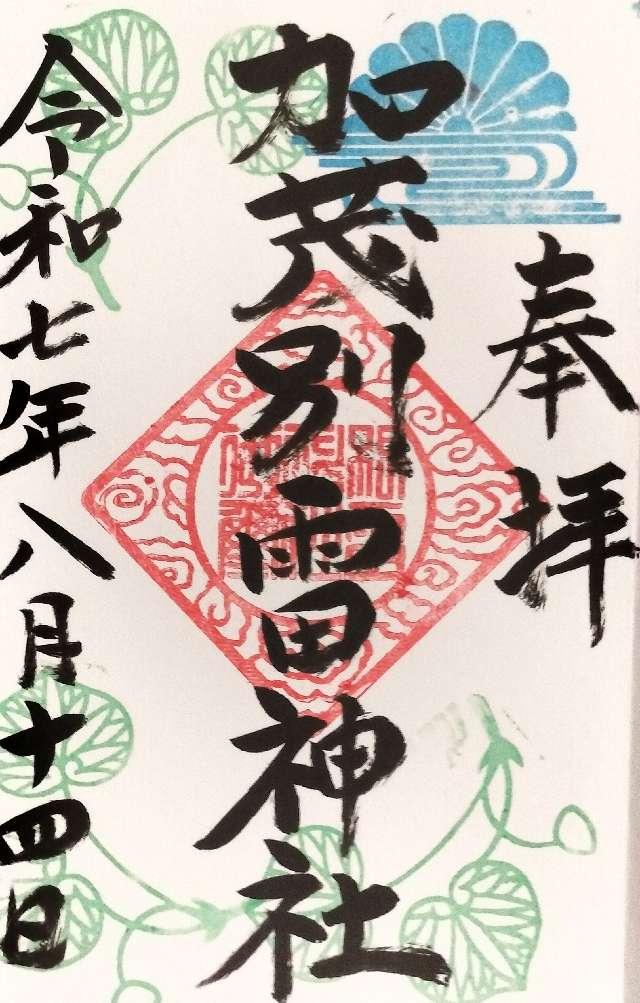 奉拝
加茂別雷神社
令和七年八月十四日